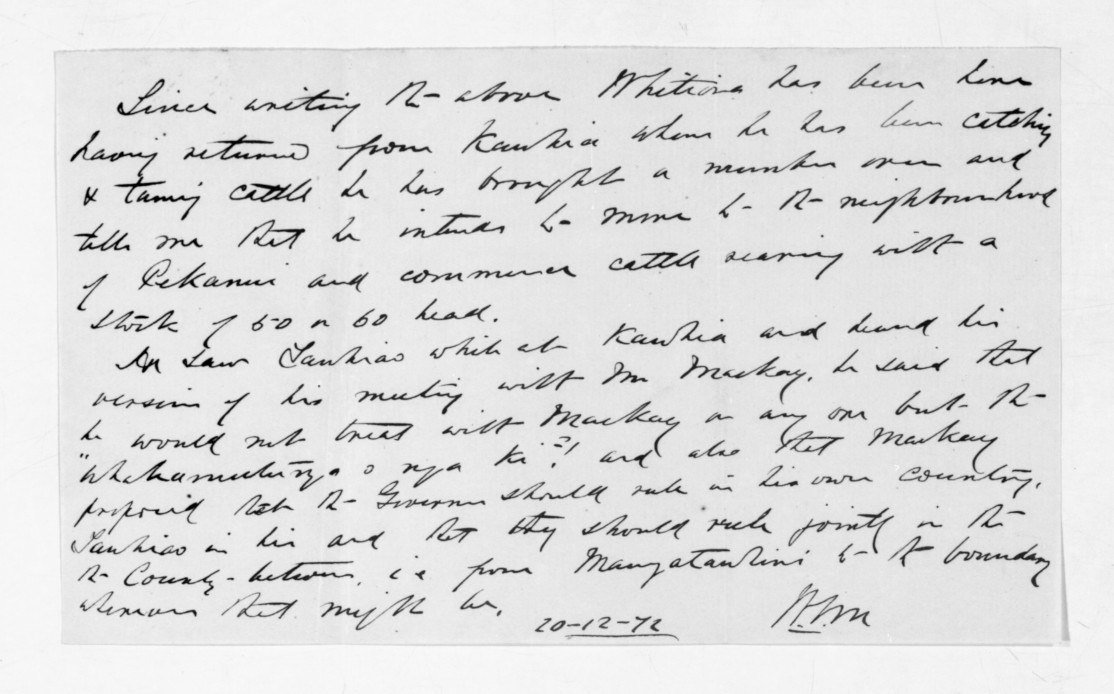 Since writing the above Whitiora has been here
having returned from Kawhia where he has been catching
& taming cattle he has brought a number over and
tells me that he intends to move to the neighbourhood
of Pekanui and commence cattle rearing with a
stock of 50 or 60 head.
He saw Tawhiao while at Kawhia and heard his
version of his meeting with Mr Mackay. he said that
he would not treat with Mackay or any one but the
"Whakamutunga o nga Ki"?! and also that Mackay
proposed that the Governor should rule in his own country.
Tawhiao in his and that they should rule jointly in the
the County between, i e from Mangatawhiri to the boundary
wherever that might be.
20-12-72